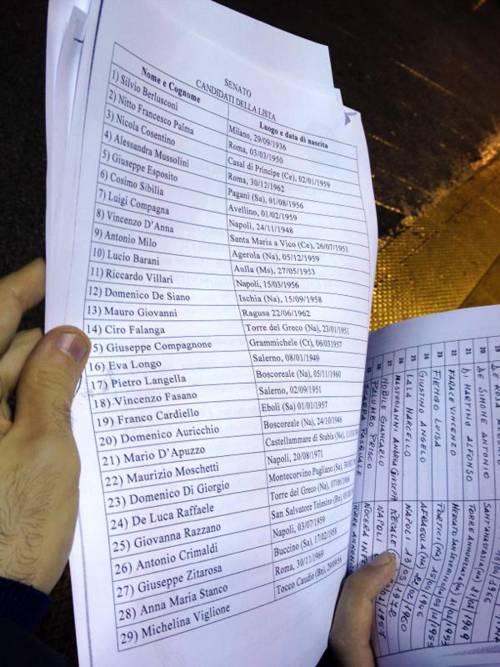 SENATO
CANDIDATI DELLA LISTA
Nome e Cognome Luogo e data di nascita
1) Silvio Berlusconi Milano, 29/09/1936
2) Nitto Francesco Palma Roma, 03/03/1950
3) Nicola Cosentino Casal di Principe (Ce), 02/01/1959
4) Alessandra Mussolini Roma, 30/12/1962
5) Giuseppe Esposito Pagani (Sa), 01/08/1956
6) Cosimo Sibilia Avellino, 01/02/1959
7) Luigi Compagna Napoli, 24/11/1948
8) Vincenzo D'Anna Santa Maria a Vico (Ce), 26/07/1951
9) Antonio Milo Agerola (Na), 05/12/1959
10) Lucio Barani Aulla (Ms), 27/05/1953
11) Riccardo Villari Napoli, 15/03/1956
12) Domenico De Siano Ischia (Na), 15/09/1958
13) Mauro Giovanni Ragusa 22/06/1962
14) Ciro Falanga Torre del Greco (Na), 23/01/1951
5) Giuseppe Compagnone Grammichele (Ct), 06/03/1957
16) Eva Longo Salerno, 08/01/1949
17) Pietro Langella Boscoreale (Na), 05/11/1960
18) Vincenzo Fasano Salerno, 02/09/1951
19) Franco Cardiello Eboli (Sa) 01/01/1957
20) Domenico Auricchio Boscoreale (Na), 24/10/1946
21) Mario D'Apuzzo Castellammare di Stabia (Na),
22) Maurizio Moschetti Napoli, 20/08/1971
23) Domenico Di Giorgio Montecorvino Pugliano (Sa),
24) De Luca Raffaele Torre del Greco (Na),
25) Giovanna Razzano San Salvatore Telesino (Bn),
26) Antonio Crimaldi Napoli, 03/07/1959
27) Giuseppe Zitarosa Buccino (Sa), 17/02/1958
28) Anna Maria Stanco Roma, 30/11/1969
29) Michelina Viglione Tocco Caudio (Bn),
DE SIMONE ANTONIO
DI MARTINO ALFONSO TORRE ANNUNZIATA
VINCENZO
LUISA PORTICI (NA)
GIUSTINO ANGELO AFRAGOLA (NA)
LALA MARCELLO NAPOLI
NOBILE GIANCARLO NAPOLI
PALUMBO PRISCO NOCERA